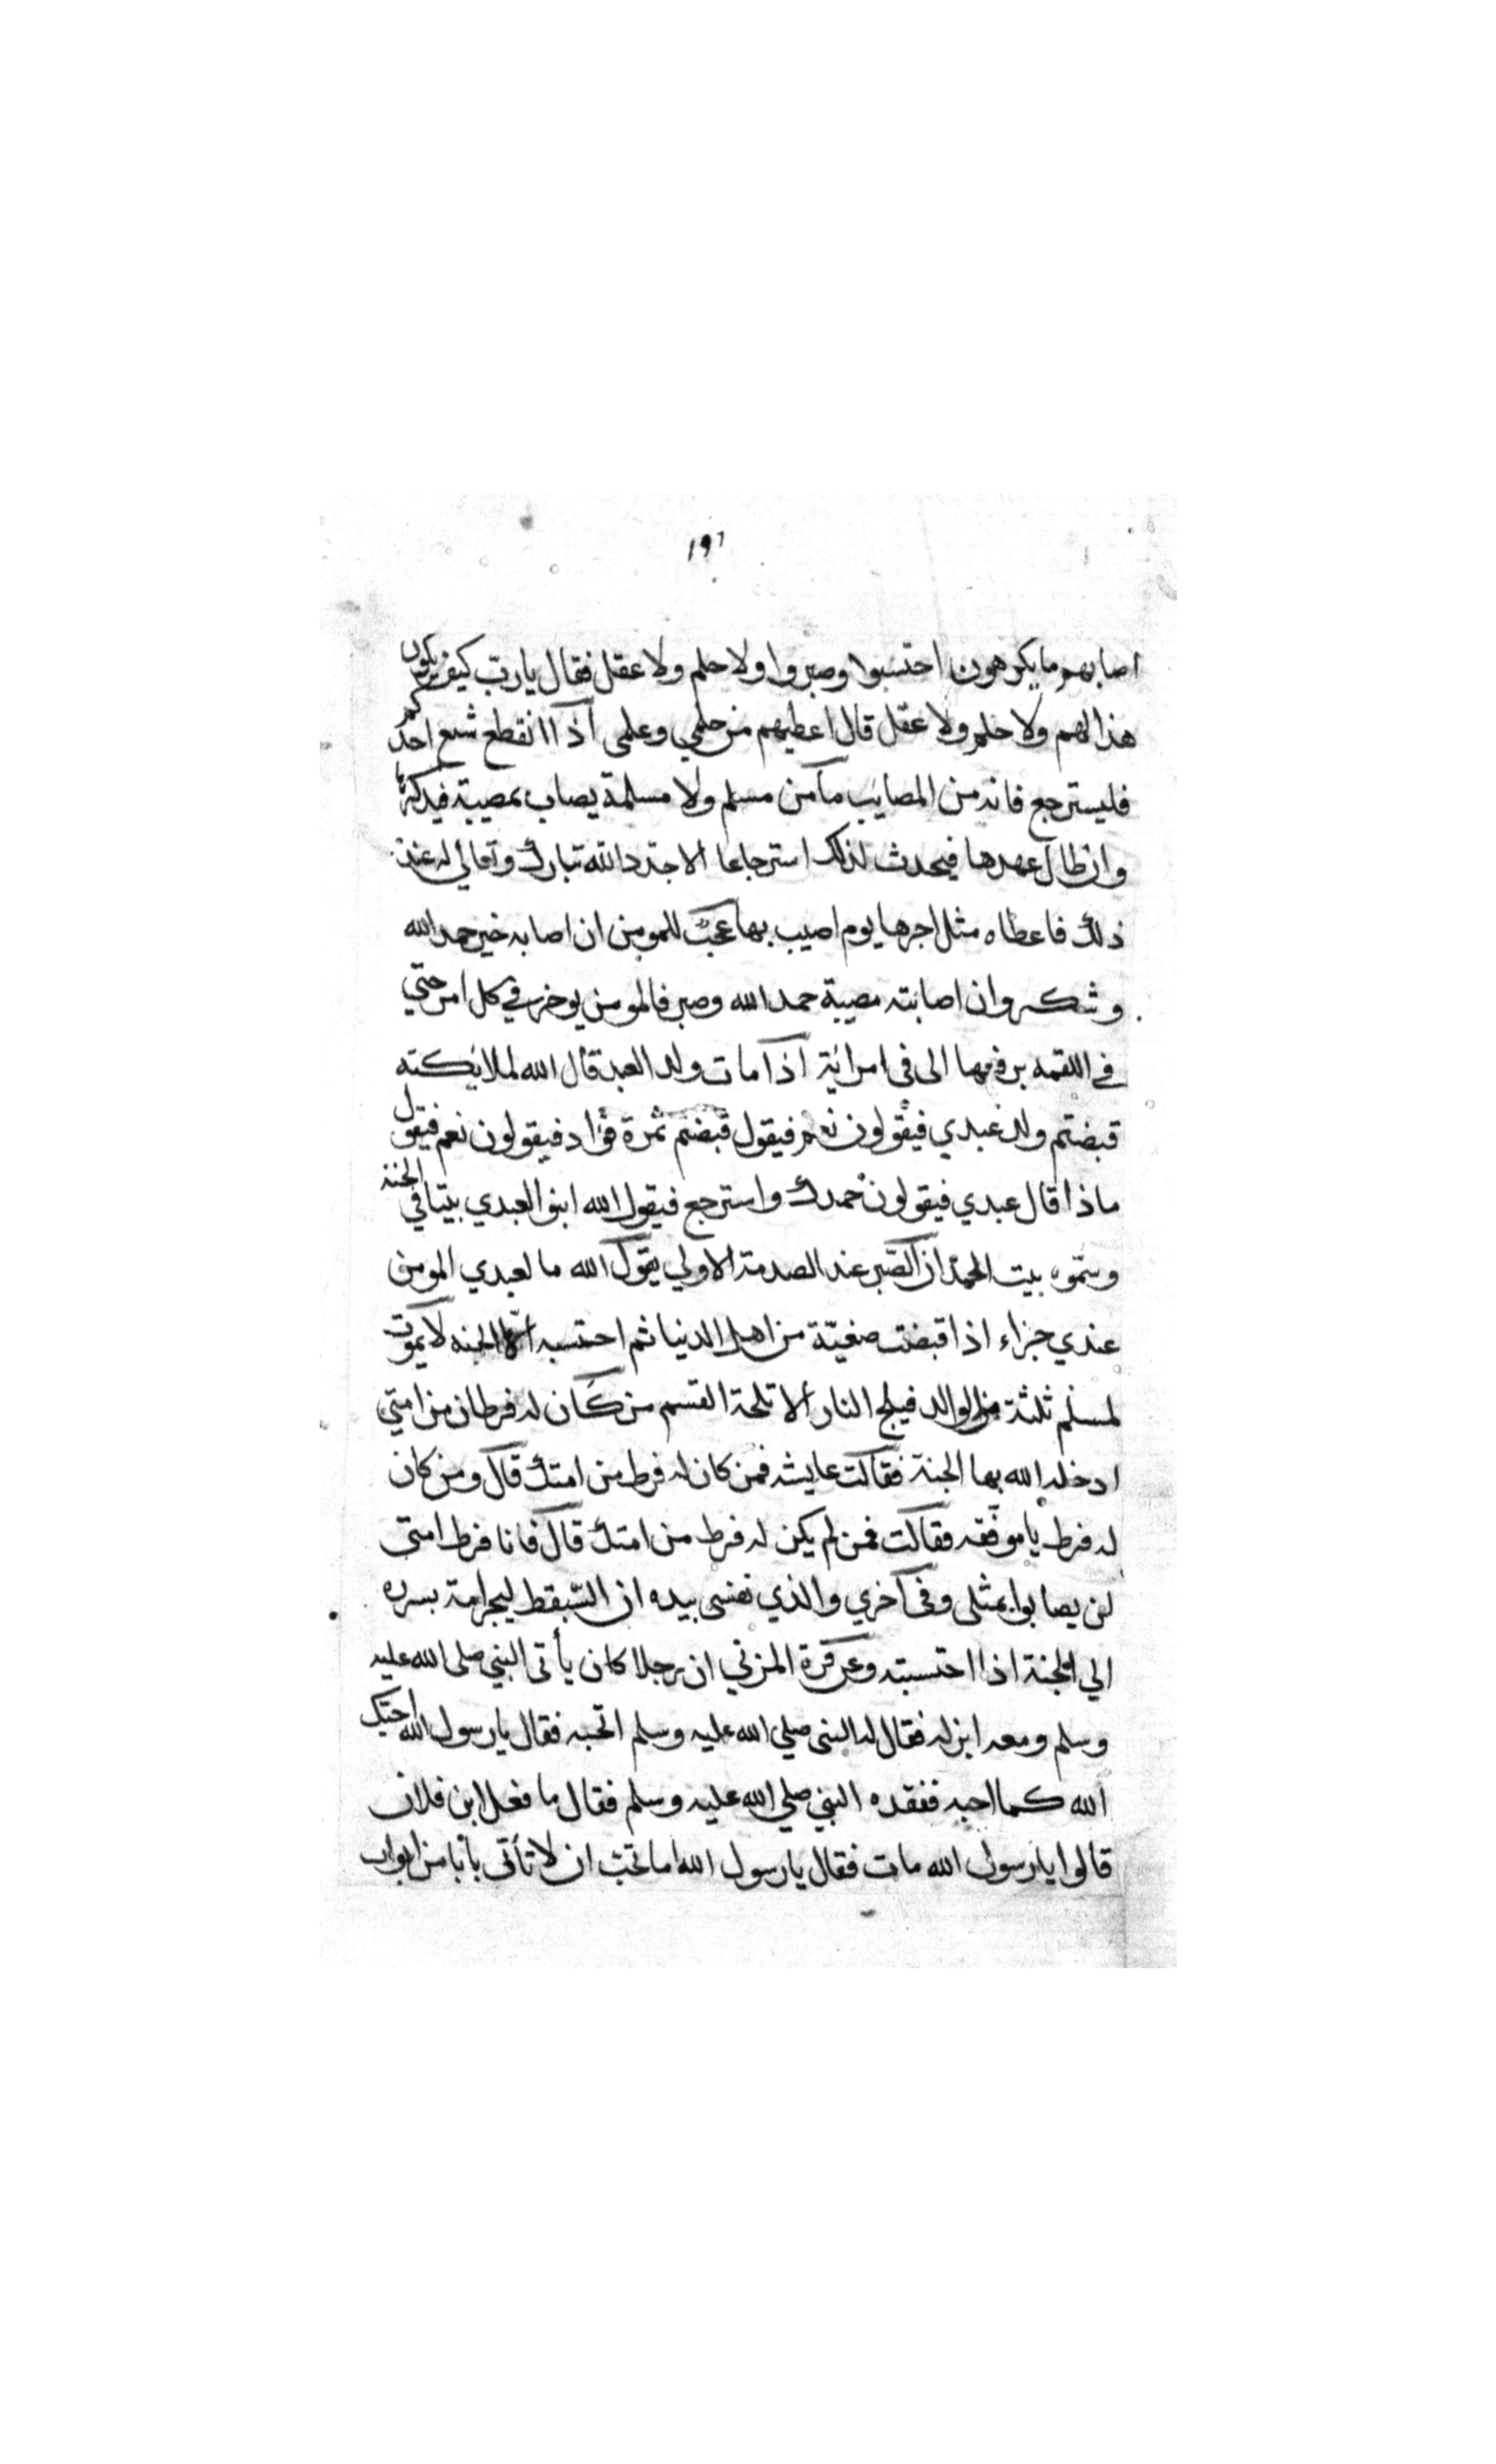 ١٩٦
اصابهم ما يكرهون احتسبوا وصبروا ولا حلم ولا عقل فقال يا رب كيف يكون
هذا لهم ولا حلم ولا عقل قال اعطيهم من حلمي وعلمي اذا انقطع شسع احدكم
فليسترجع فانه من المصائب ما من مسلم ولا مسلمة يصاب بمصيبة فيذكرها
وان طال عهدها فيحدث لذلك استرجاعا الا جدد الله تبارك وتعالي له عند
ذلك فاعطاه مثل اجرها يوم اصيب بها عجب للمومن ان اصابه خير حمد الله
وشكر وان اصابته مصيبة حمد الله وصبر فالمومن يوجر في كل امر حتي
في اللقمه يرفعها الى في امراته اذا مات ولد العبد قال الله لملايكته
قبضتم ولد عبدي فيقولون نعم فيقول قبضتم ثمرة فؤاد فيقولون نعم فيقول
ماذا قال عبدي فيقولون حمدك واسترجع فيقول الله ابنوا لعبدي بيتا في الجنة
وسموه بيت الحمد ان الصبر عند الصدمة الاولي يقول الله ما لعبدي المومن
عندي جزاء اذا قبضت صفيّة من اهل الدنيا ثم احتسبه الا الجنه لا يموت
لمسلم ثلثة من الولد فيلج النار الا تحلة القسم من كان له فرطان من امتي
ادخله الله بها الجنة فقالت عايشه فمن كان له فرط من امتك قال ومن كان
له فرط يا موفقه فقالت فمن لم يكن له فرط من امتك قال فانا فرط امتى
لن يصابوا بمثلى وفى اخري والذي نفسى بيده ان السقط ليجر امه بسرره
الي الجنة اذا احتسبته وعن قرة المزني ان رجلا كان يأتى النبي صلى الله عليه
وسلم ومعه ابن له فقال له النبى صلي الله عليه وسلم اتحبه فقال يا رسول الله احبك
الله كما احبه ففقده النبي صلي الله عليه وسلم فقال ما فعل ابن فلان
قالوا يا رسول الله مات فقال يا رسول الله اما تحب ان لا تأتى بابا من ابواب